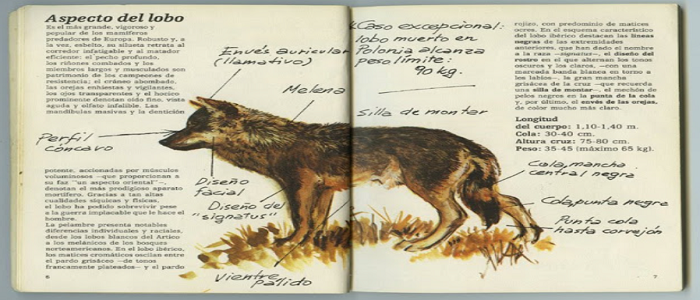 Aspecto del lobo
Es el más grande, vigoroso y
popular de los mamíferos
predadores de Europa. Robusto y, a
la vez, esbelto, su silueta retrata al
corredor infatigable y al matador
eficiente: el pecho profundo,
los riñones combados y los
miembros largos y musculados son
patrimonio de los campeones de
resistencia; el cráneo abombado,
las orejas enhiestas y vigilantes,
los ojos transparentes y el hocico
prominente denotan oído fino, vista
aguda y olfato infalible. Las
mandíbulas masivas y la dentición
potente, accionadas por músculos
voluminosos —que proporcionan a
su faz "un aspecto oriental"—,
denotan el más prodigioso aparato
mortífero. Gracias a tan altas
cualidades síquicas y físicas,
el lobo ha podido sobrevivir pese
a la guerra implacable que le hace el
hombre.
La pelambre presenta notables
diferencias individuales y raciales,
desde los lobos blancos del Ártico
a los melánicos de los bosques
norteamericanos. En el lobo ibérico,
los matices cromáticos oscilan entre
el pardo grisáceo —de tonos
francamente plateados— y el pardo
6
Envés auricular
(llamativo)
Melena
Perfil
cóncavo
Diseño
facial
Diseño del
"signatus"
Vientre
pálido
Caso excepcional:
lobo muerto en
Polonia alcanza
peso límite:
90 kg.
Silla de montar
rojizo, con predominio de matices
ocres. En el esquema característico
del lobo ibérico destacan las líneas
negras de las extremidades
anteriores, que han dado el nombre
a la raza —signatus—, el diseño del
rostro en el que alternan los tonos
oscuros y los claros, —con una
marcada banda blanca en torno a
los labios—, la gran mancha
grisácea de la cruz —que recuerda
una silla de montar—, el mechón de
pelos negros en la punta de la cola
y, por último, el envés de las orejas,
de color mucho más claro.
Longitud
del cuerpo: 1,10-1,40 m.
Cola: 30-40 cm.
Altura cruz: 75-80 cm.
Peso: 35-45 (máximo 65 kg).
Cola, mancha
central negra
Cola, punta negra
Punta cola
hasta corvejón
7